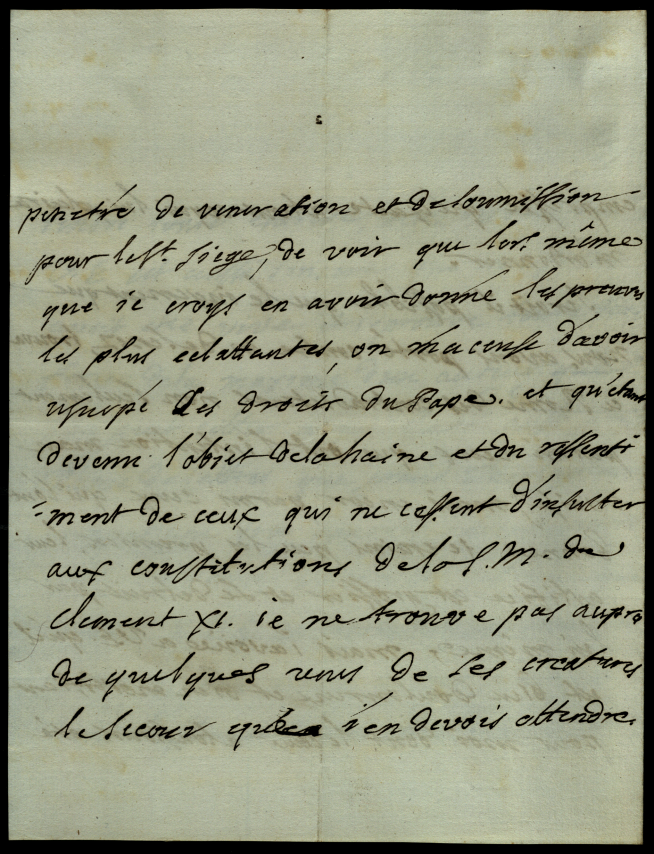 penetré de veneration et de soumission
pour le St. Siege, de voir que lors même
que ie croys en avoir donné les preuves
les plus eclattantes, on m'accuse d'avoir
usurpé des droits du Pape. et qu'étant
devenu l'obiet de la haine et du ressenti
-ment de ceux qui ne cessent d'insulter
aux constitutions de la S. M. de
Clement XI. ie ne trouve pas aupres
de quelques uns de ses creatures
le secour que i'en devois attendre.